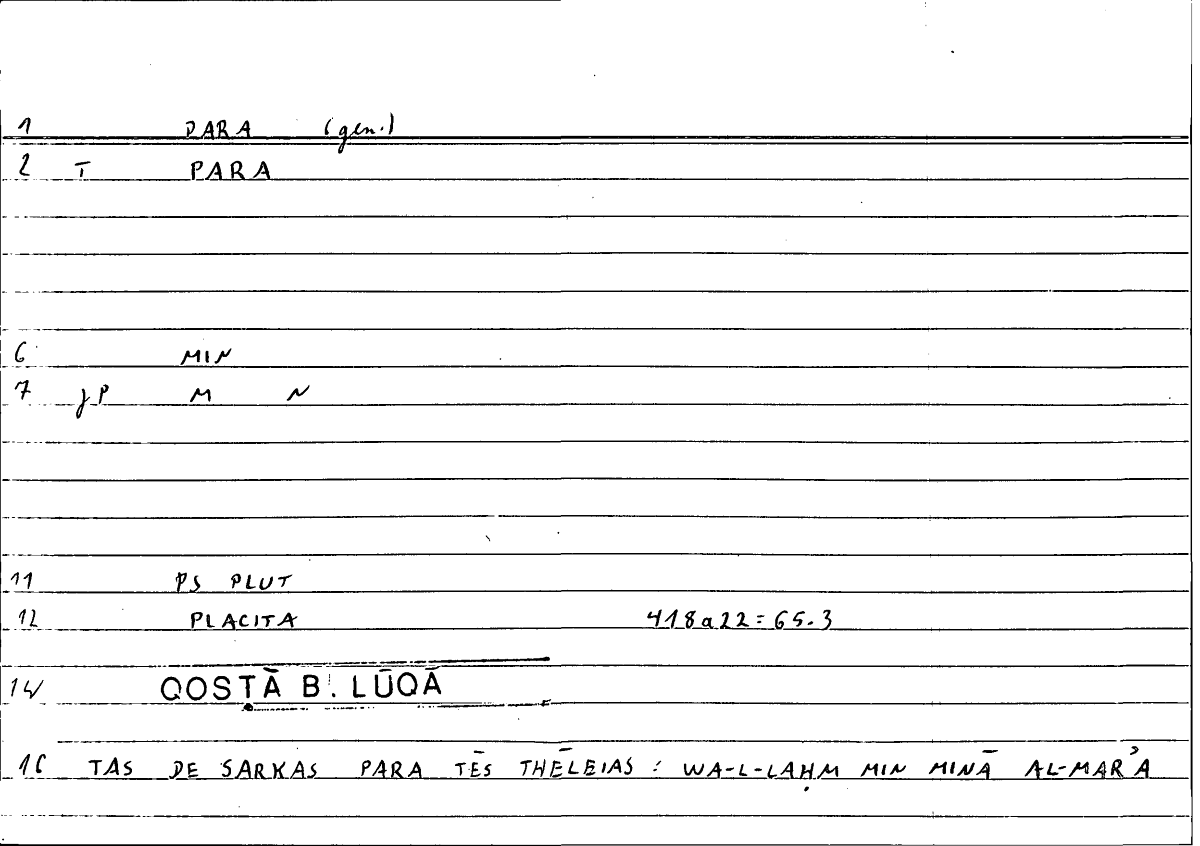 1 PARA (gen.)
2 T PARA
6 MIN
7 jP M N
11 PS PLUT
12 PLACITA 418a22 = 65.3
14 QOSṬĀ B. LŪQĀ
16 TAS DE SARKAS PARA TĒS THĒLEIAS : WA-L-LAḤM MIN MINĀ AL-MARʾA